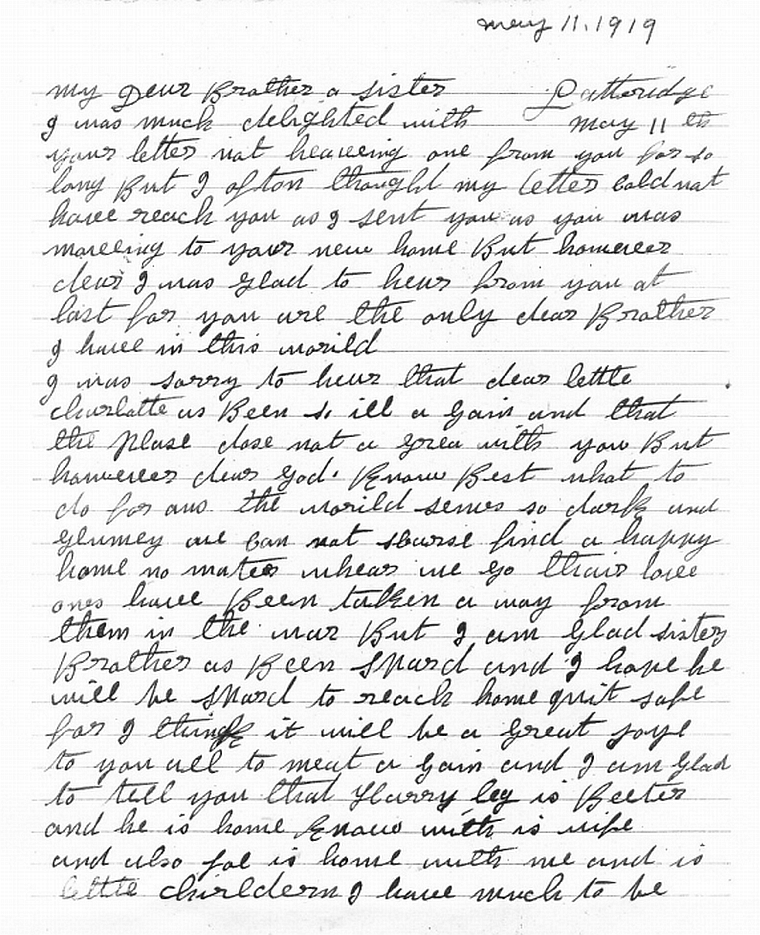 may 11.1919
my Dear Brother a sister Patteridge
I was much delighted with may 11 th
your letter not heareing one from you for so
long But I ofton thought my letter Cold not
have reach you as I sent you as you was
moveing to your new home But however
dear I was Glad to hear from you at
last for you are the only dear Brother
I have in this worild
I was sorry to hear that dear lettle
charlotte as Been so ill a Gain and that
the Plase dose not a Grea with you But
however dear God. Know Best what to
do for ous the worild semes so dark and
Glumey we Can not sCarse find a happy
home no mater whear we Go thair love
ones have Been taKen a way from
them in the war But I am Glad sisters
Brother as Been SPard and I hope he
will be SPard to reach home quit safe
for I think it will be a Great joye
to you all to meat a Gain and I am Glad
to tell you that Harry leg is Beeter
and he is home Know with is wife
and also Joe is home with me and is
lettle chirldern I have much to be